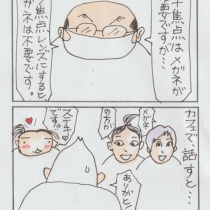 焦点は
メガネが
必要ですが…
焦点レンズにすると
ガネは不要です。
カフェで、話すと…
メガネ
の方が
ステキ
です
ありがと!